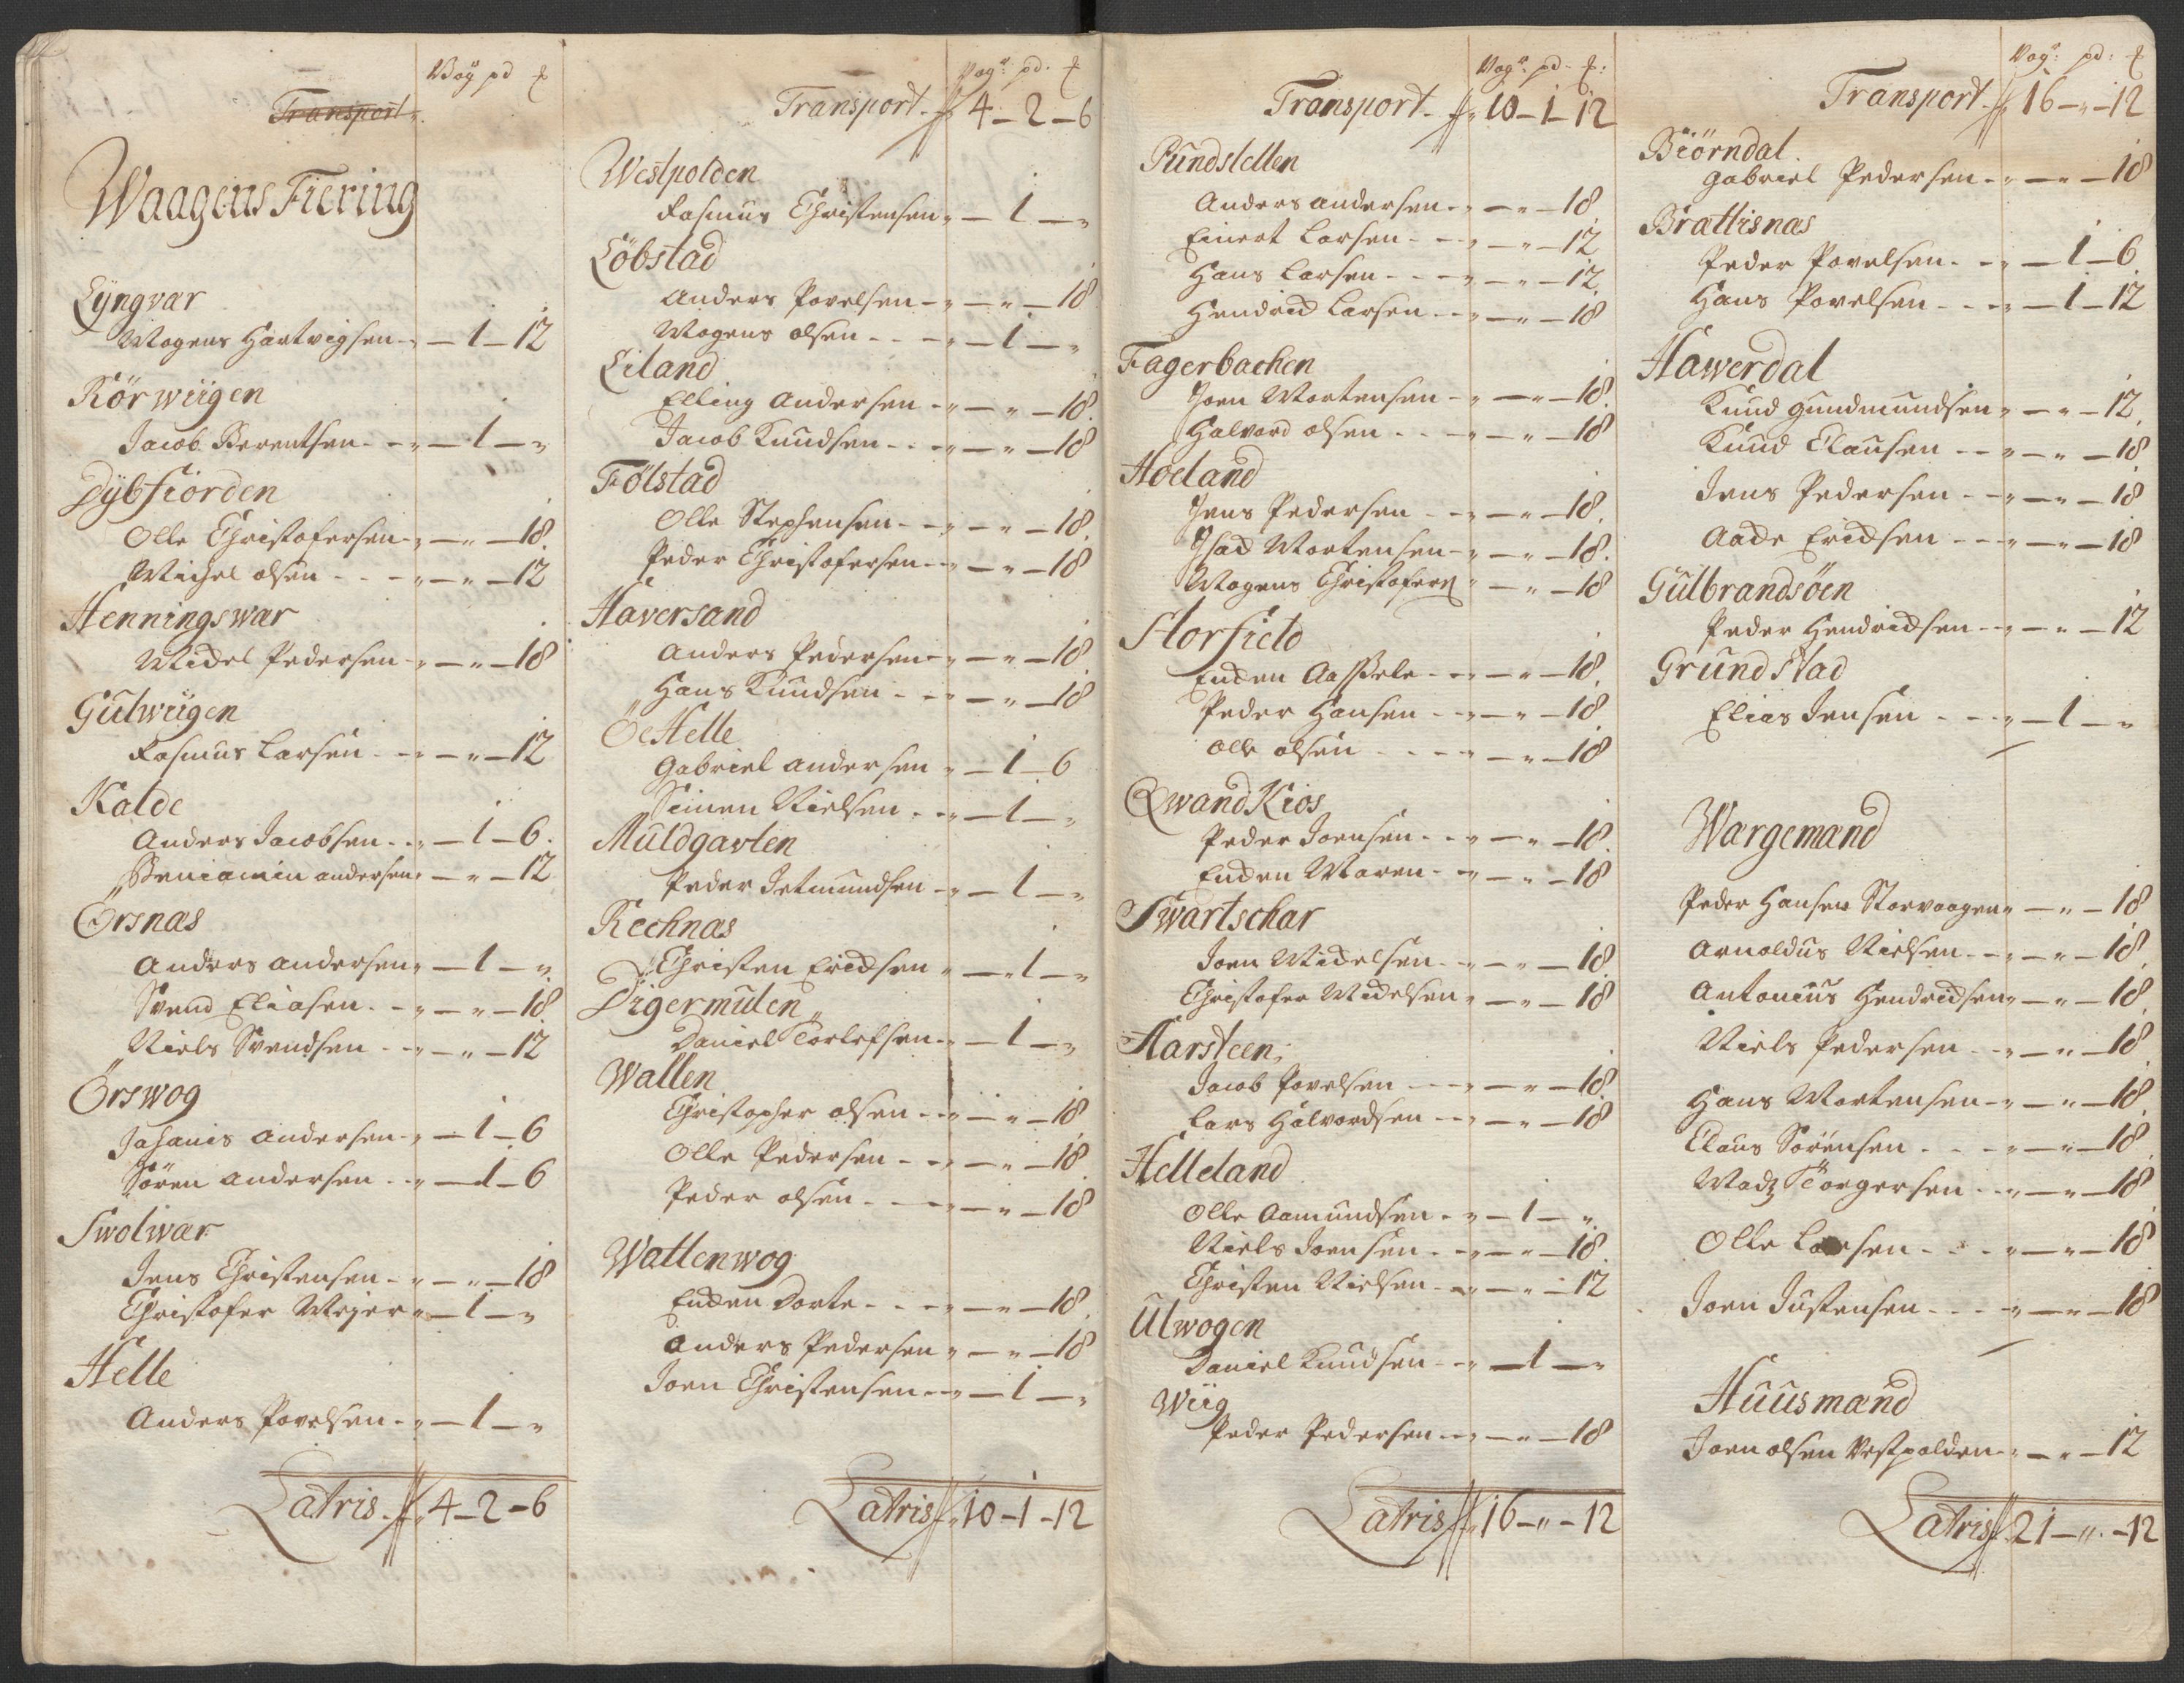 Vog pd £
Transport
Waagens Fiering
Lÿngvar
Mogens Hartvigsen - „ - 1 - 12
Rörwiigen
Jacob Berentsen - - „ - 1 - „
Dÿbfiorden
Olle Christofersen - „ - „ - 18.
Michel olsen - - - „ - „ - 12
Henningswar
Mickel Pedersen - „ - „ - 18
Gulwiigen
Rasmus Larsen - - „ - „ - 12
Kalde
Anders Jacobsen - - „ - 1 - 6.
Beniamin andersen „ - „ - 12
Örsnas
Anders andersen „ - 1 - „
Svend Eliasen - - „ - „ - 18.
Niels Svendsen - - „ - „ - 12
Örswog
Johanis andersen - „ - 1 - 6
Sören andersen - - „ - 1 - 6
Swolwar
Jens Christensen - „ - „ - 18
Christofer Meyer „ - 1 - „
Helle
Anders Povelsen - „ - 1 - „
Latris - 4 - 2 - 6
Vogr: pd: £
Transport - 4 - 2 - 6
Westpolden
Rasmus Christensen „ - 1 - „
Löbstad
Anders Povelsen - „ - „ - 18
Mogens olsen - - - „ - 1 - „
Eiland
Elling Andersen - „ - „ - 18.
Jacob Knudsen - - - „ - „ - 18
Fölstad
Olle Stephensen - - „ - „ - 18.
Peder Christofersen - „ - „ - 18
Haversand
Anders Pedersen - „ - „ - 18.
Hans Knudsen - - „ - „ - 18
Öe Helle
Gabriel andersen „ - 1 - 6
Simen Nielsen - - „ - 1 - „
Muldgavlen
Peder Jetmundsen - „ - 1 - „
Rechnas
Christen Ericksen „ - 1 - „
Digermulen
Daniel Torlefsen - „ - 1 - „
Wallen
Christopher olsen - - „ - „ - 18.
Olle Pedersen - - „ - „ - 18.
Peder olsen - - - „ - „ - 18
Wattenwog
Encken Dorte - - - „ - „ - 18.
Anders Pedersen „ - „ - 18
Joen Christensen - - „ - 1 - „
Latris 10 - 1 - 12
Vogr: pd - £:
Transport - 10 - 1 - 12
Pundsletten
Anders andersen - „ - „ - 18.
Einert Larsen - - „ - „ - 12.
Hans Larsen - - - „ - „ - 12.
Hendrick Larsen - - „ - „ - 18
Fagerbachen
Joen Mortensen - „ - „ - 18.
Halvord olsen - - - „ - „ - 18
Hoeland
Jens Pedersen - - „ - „ - 18.
Isack Mortensen - „ - „ - 18.
Mogens Christofers „ - „ - 18
Storfield
Encken Aassele - - „ - „ - 18.
Peder Hansen - - „ - „ - 18.
Olle olsen - - - - „ - „ - 18
Qwand Kios
Peder Joensen - - - „ - „ - 18.
Encken Maren - - „ - „ - 18
Swartschar
Joen Mickelsen - „ - „ - 18.
Christofer Mickelsen „ - „ - 18
Harsteen
Jacob Povelsen - - „ - „ - 18.
Lars Halvordsen - - „ - „ - 18
Helleland
Olle Aamundsen - „ - 1 - „
Niels Joensen - - „ - „ - 18.
Christen Nielsen - „ - „ - 12
Ulwogen
Daniel Knudsen - - „ - 1 - „
Wiig
Peder Pedersen - - „ - „ - 18
Latris 16 - „ - 12
Vogr: pd: £
Transport - 16 - „ - 12
Biörndal
Gabriel Pedersen - „ - „ - 18
Brattisnas
Peder Povelsen - - „ - 1 - 6.
Hans Povelsen - - - „ - 1 - 12
Hawerdal
Knud Gundmundsen „ - „ - 12.
Knud Clausen - - „ - „ - 18.
Jens Pedersen - - „ - „ - 18
Aade Ericksen - - - „ - „ - 18
Gulbrandsöen
Peder Hendricksen - „ - „ - 12
Grundstad
Elias Jensen - - - „ - 1 - „
Wargemand
Peder Hansen Storvaagen „ - „ - 18
Arnoldus Nielsen - - „ - „ - 18.
Antonius Hendricksen „ - „ - 18.
Niels Pedersen - - „ - „ - 18
Hans Mortensen - „ - „ - 18.
Claus Sörensen - - - „ - „ - 18.
Madz Torgersen - - „ - „ - 18
Olle Larsen - - - „ - „ - 18
Joen Justensen - - - „ - „ - 18
Huusmand
Joen olsen Vestpolden - „ - „ - 12
Latris 21 - „ - 12